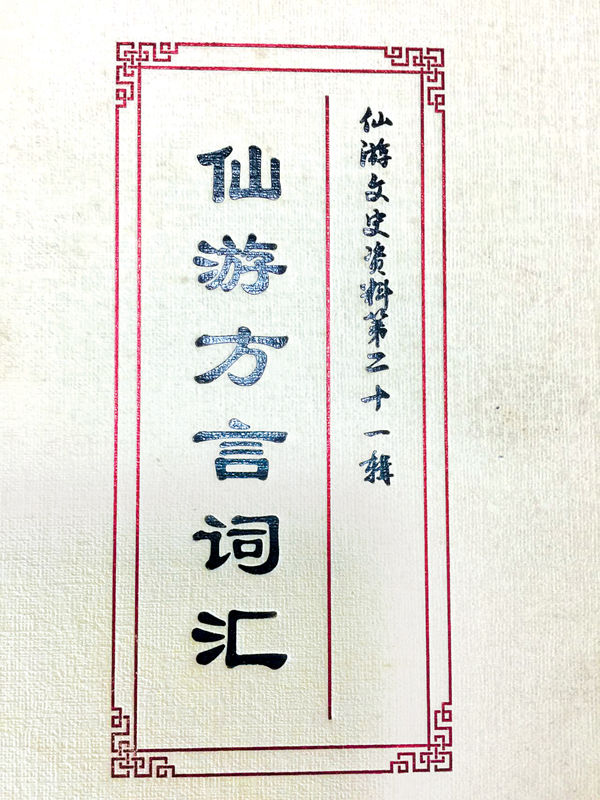 仙游文史资料第二十一辑
仙游方言词汇